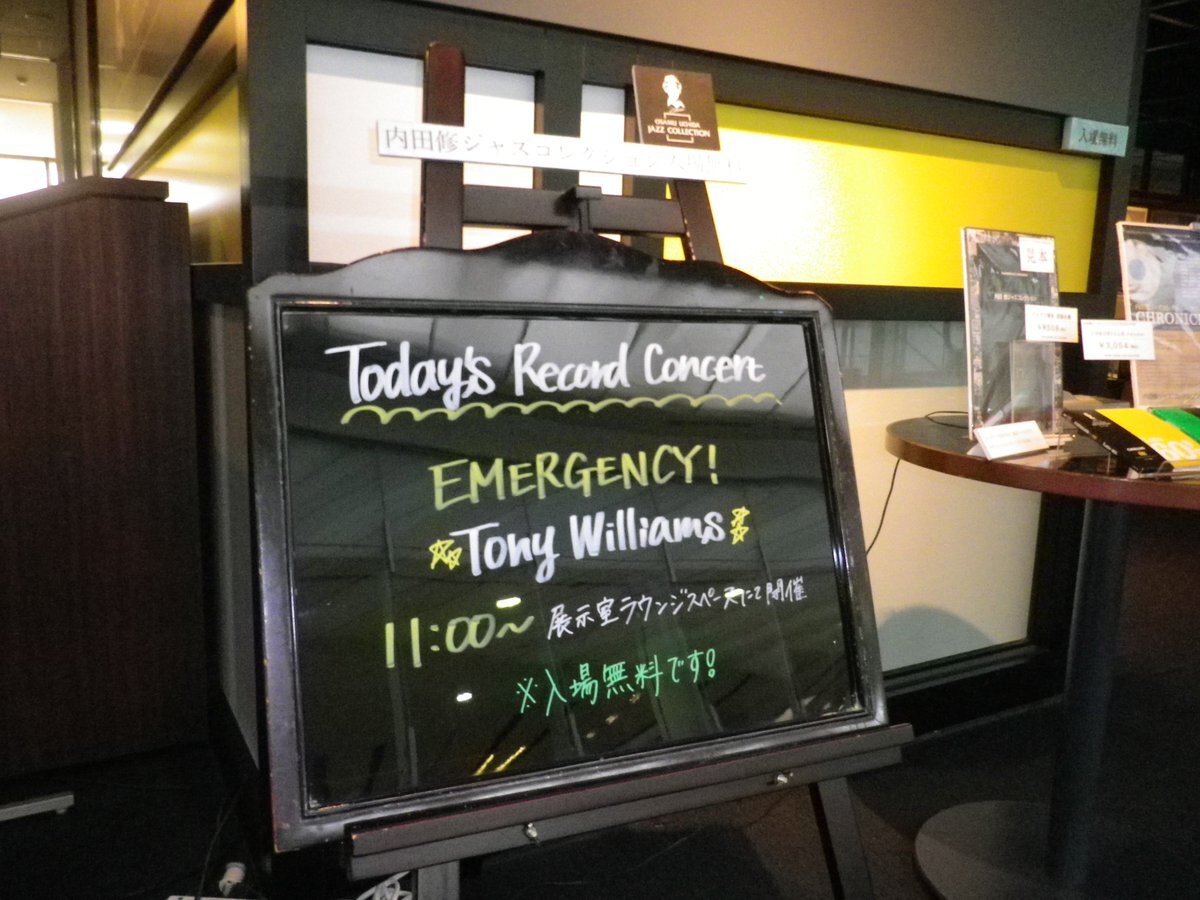 OSAMU UCHIDA
JAZZ COLLECTION
内田修ジャズコレクション入場無料
入場無料
Today's Record Concert
EMERGENCY!
Tony Williams
11:00～ 展示室ラウンジスペースにて開催
※入場無料です!
見本
CHRONICL
¥3,054